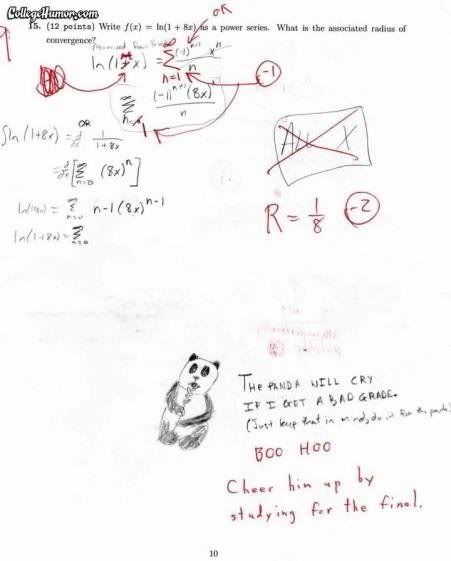 CollegeHumor.com
15. (12 points) Write f(x) = ln(1 + 8x) as a power series. What is the associated radius of
convergence?
OK
ln(1+x) = ∑ n=1 (-1)^{n+1} x^n / n
-1
∑ (-1)^{n+1} (8x)^n / n
1
OR
∫ln(1+8x) = d/dx 1/(1+8x)
= d/dx [∑ n=0 (8x)^n]
∑ n=0 n-1(8x)^{n-1}
ln(1+8x) = ∑ n=0
ALL X
R = 1/8 -2
THE PANDA WILL CRY
IF I GET A BAD GRADE.
(Just keep that in mind, do it for the panda)
BOO HOO
Cheer him up by
studying for the final.
10